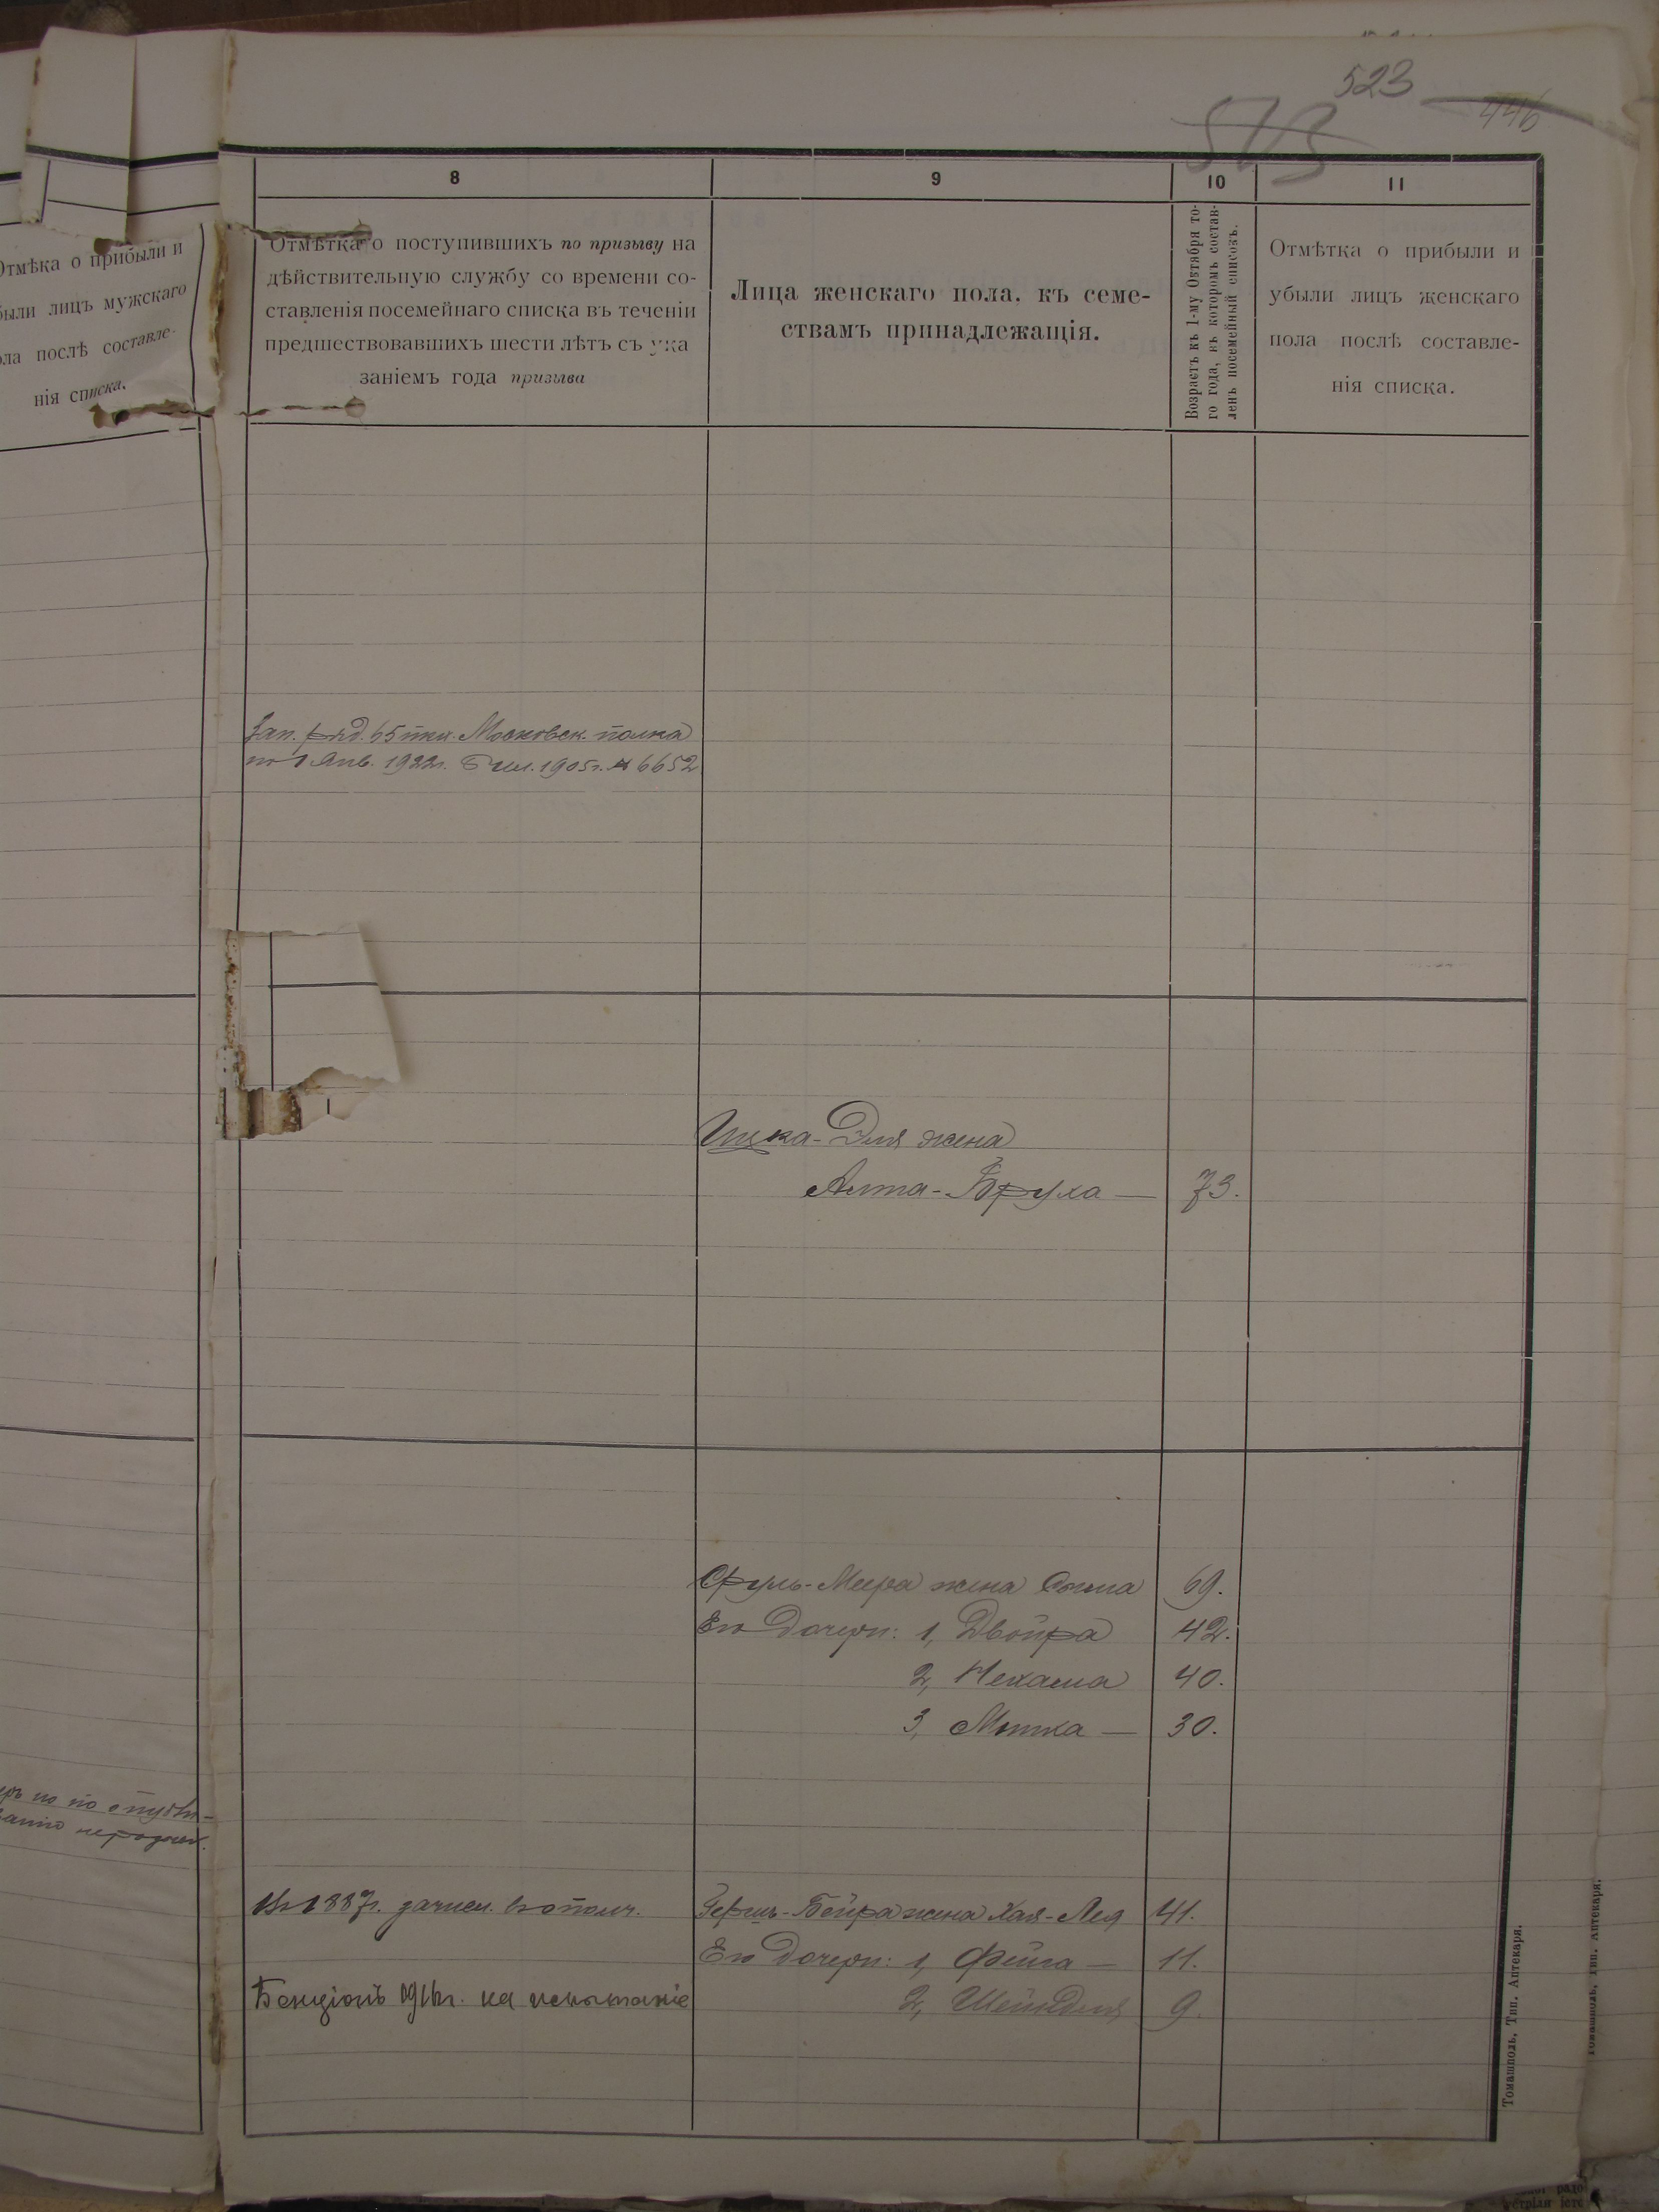 523
446
Отмѣка о прибыли и
были лицъ мужскаго
ола послѣ составле-
нія списка.
8
9
10
11
Отмѣтка о поступившихъ по призыву на
дѣйствительную службу со времени со-
ставленія посемейнаго списка въ теченіи
предшествовавшихъ шести лѣтъ съ ука
заніемъ года призыва
Лица женскаго пола, къ семе-
ствамъ принадлежащія.
Возрастъ къ 1-му Октября то-
го года, въ которомъ состав-
ленъ посемейный списокъ.
Отмѣтка о прибыли и
убыли лицъ женскаго
пола послѣ составле-
нія списка.
Зап. ряд. 65 пѣх. Московск. полка
по 1 Янв. 1922г. 1905г. № 6652
Ицка-Эля жена
Алта-Бруха — 73.
Сруль-Меера жена Сосия 69.
Его дочери: 1, Двойра 42.
2, Нехама 40.
3, — 30.
Въ 1887г. зачисл. въ ополч.
Герш-Бейра жена Хая-Лея 41.
Его дочери: 1, Фейга — 11.
Бенціонъ 1916г. на испытаніе
2, Шейндля 9.
Томашполь, Тип. Аптекаря.
Томашполь, Тип. Аптекаря.